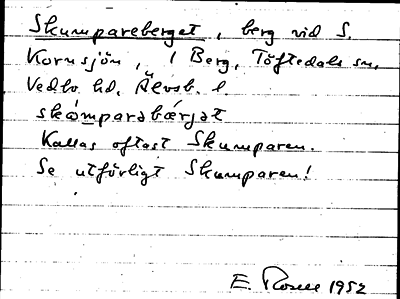 Skumpareberget, berg vid S.
Kornsjön, i Berg, Töftedals sn,
Vedbo hd, Älvsb. l.
skómparabærjat
Kallas oftast Skumparen.
Se utförligt Skumparen!
E. Rosell 1952